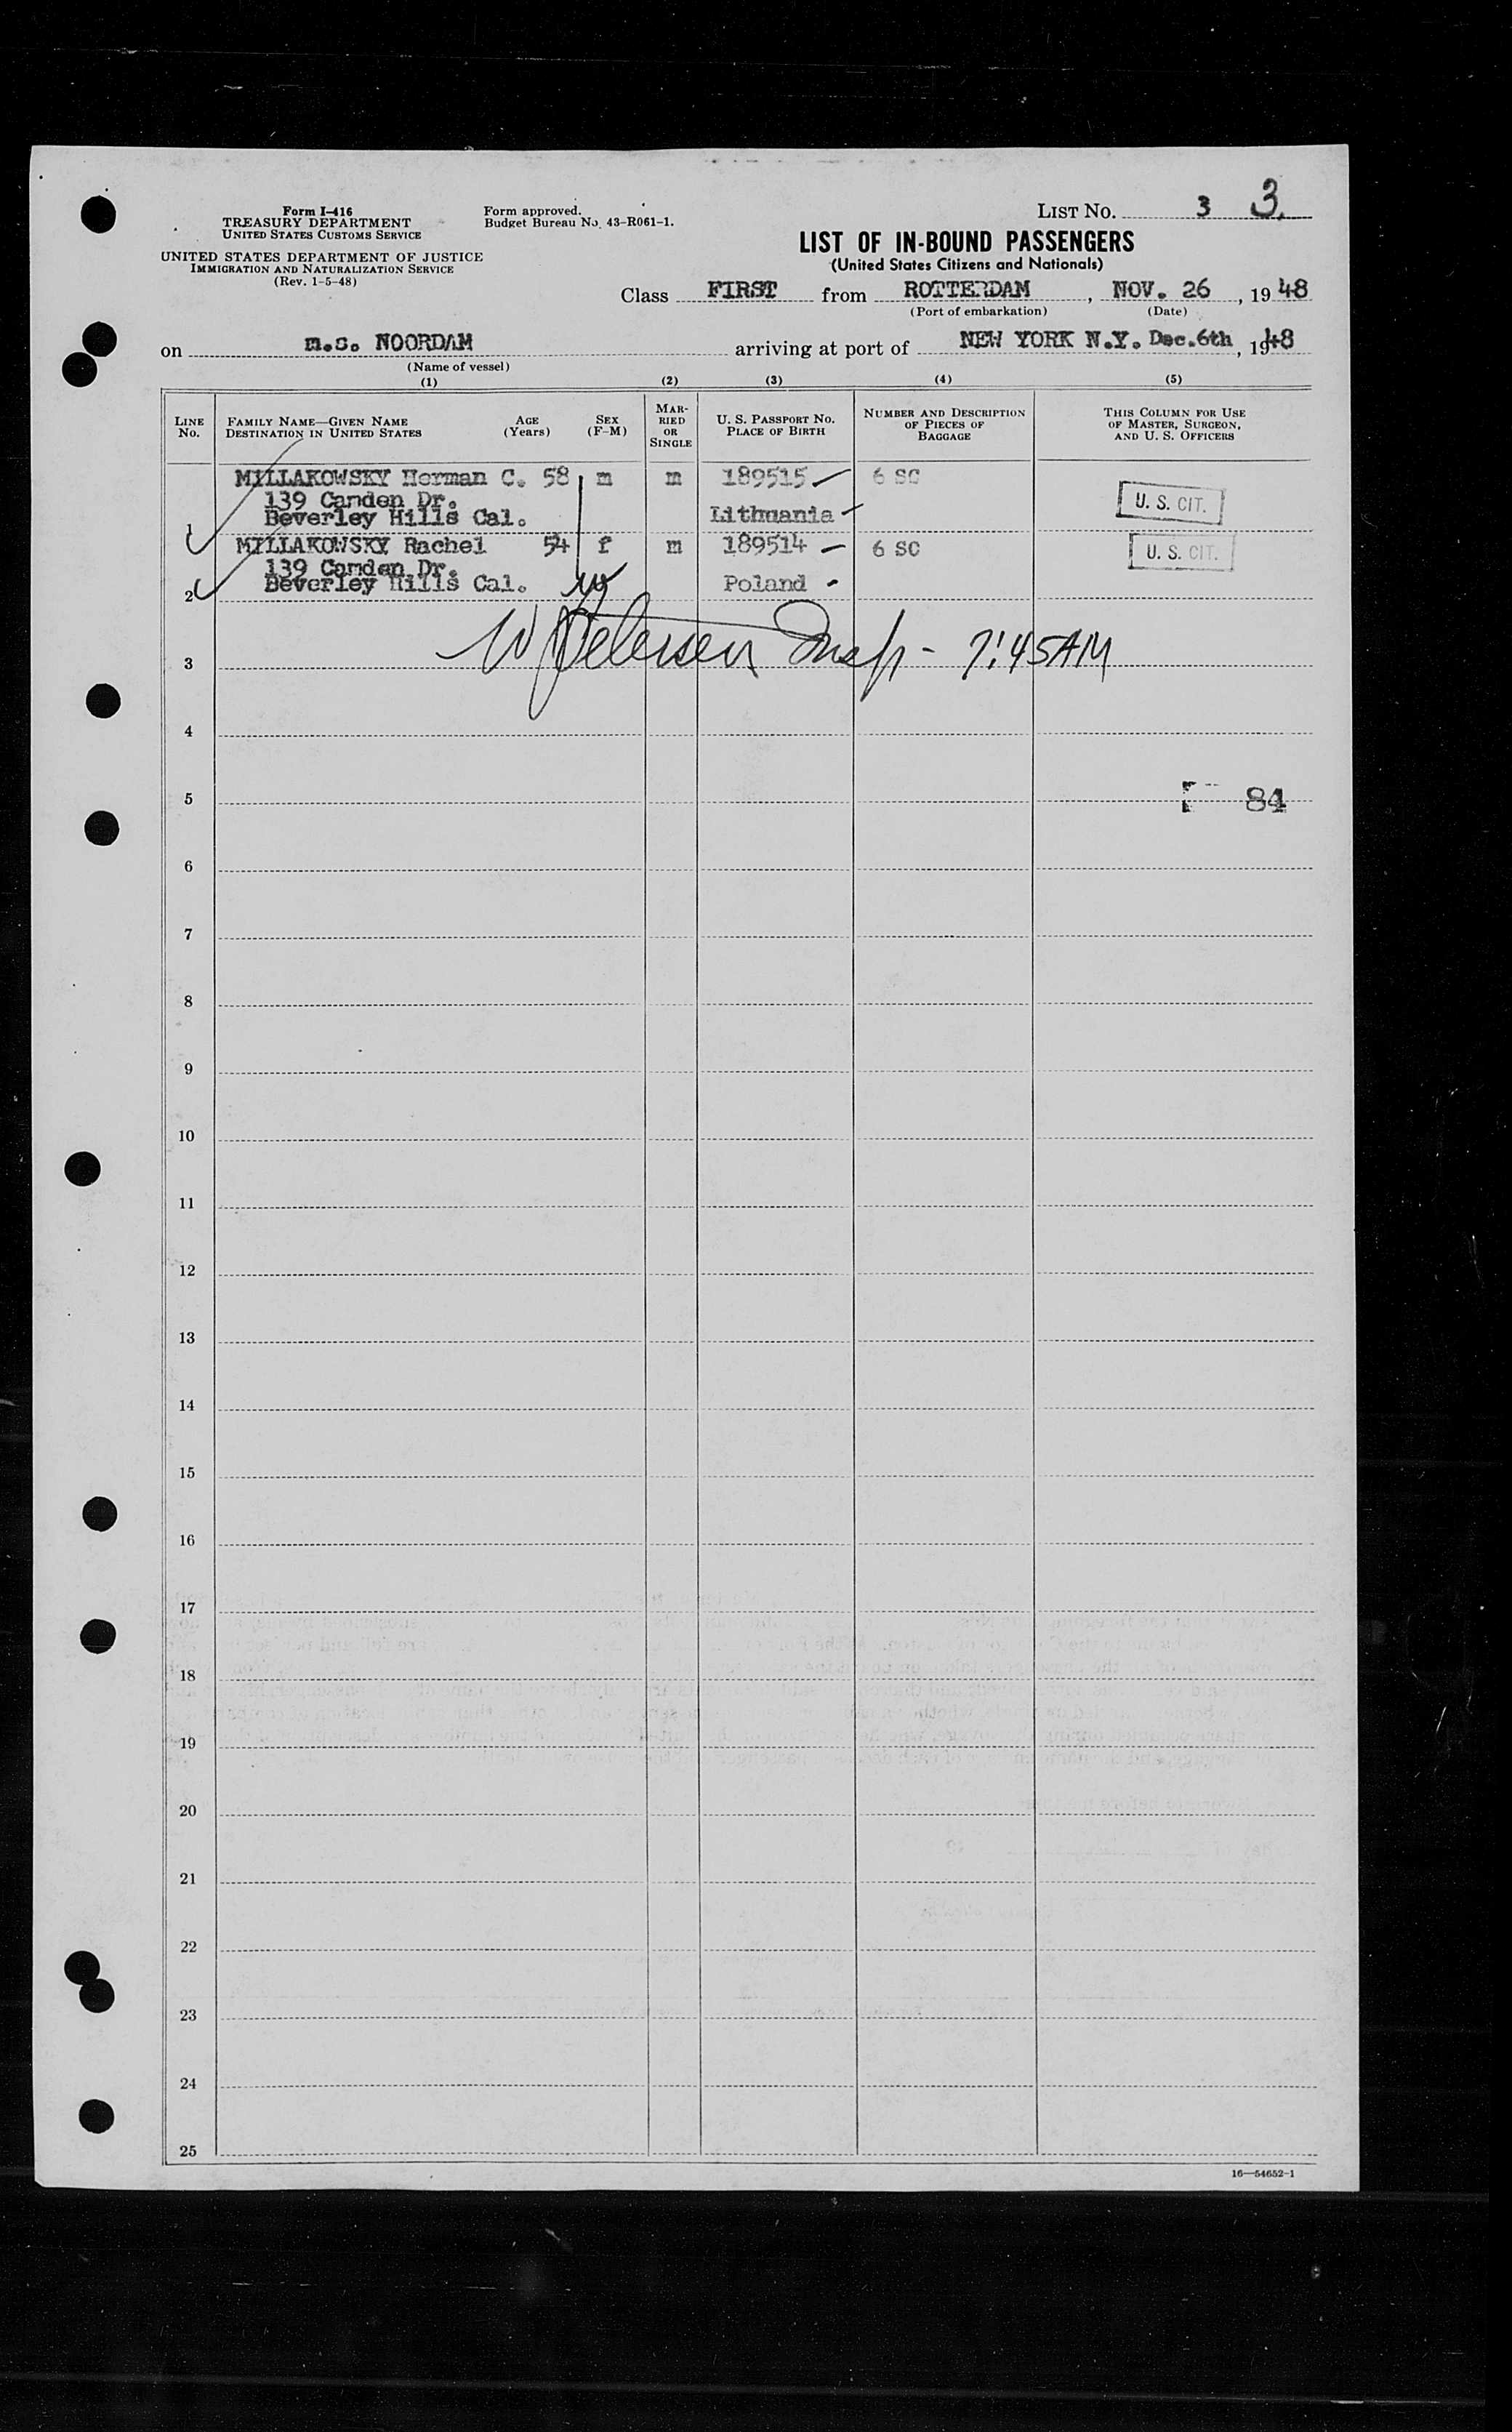 Form I-416
TREASURY DEPARTMENT
UNITED STATES CUSTOMS SERVICE
UNITED STATES DEPARTMENT OF JUSTICE
IMMIGRATION AND NATURALIZATION SERVICE
(Rev. 1-5-48)
Form approved.
Budget Bureau No. 43-R061-1.
LIST NO. 3 3.
LIST OF IN-BOUND PASSENGERS
(United States Citizens and Nationals)
Class FIRST from ROTTERDAM, NOV. 26, 1948
(Port of embarkation) (Date)
on m.s. NOORDAM arriving at port of NEW YORK N.Y. Dec.6th, 1948
(Name of vessel)
(1) (2) (3) (4) (5)
LINE NO. FAMILY NAME—GIVEN NAME DESTINATION IN UNITED STATES AGE (Years) SEX (F-M) MARRIED OR SINGLE U. S. PASSPORT NO. PLACE OF BIRTH NUMBER AND DESCRIPTION OF PIECES OF BAGGAGE THIS COLUMN FOR USE OF MASTER, SURGEON, AND U. S. OFFICERS
MILLAKOWSKY Herman C. 58 m m 189515 6 SC
139 Camden Dr. U. S. CIT.
1 Beverley Hills Cal. Lithuania
MILLAKOWSKY Rachel 54 f m 189514 6 SC U. S. CIT.
139 Camden Dr.
2 Beverley Hills Cal. Poland
3 W Petersen Insp - 7:45AM
4
5 84
6
7
8
9
10
11
12
13
14
15
16
17
18
19
20
21
22
23
24
25
16—54652-1